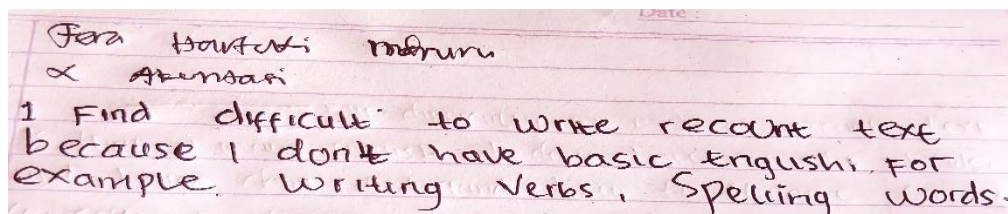 Date :
Fera
X Akuntansi
I Find difficult to write recount text
because I don't have basic English, For
example. Writing Verbs, Spelling words.